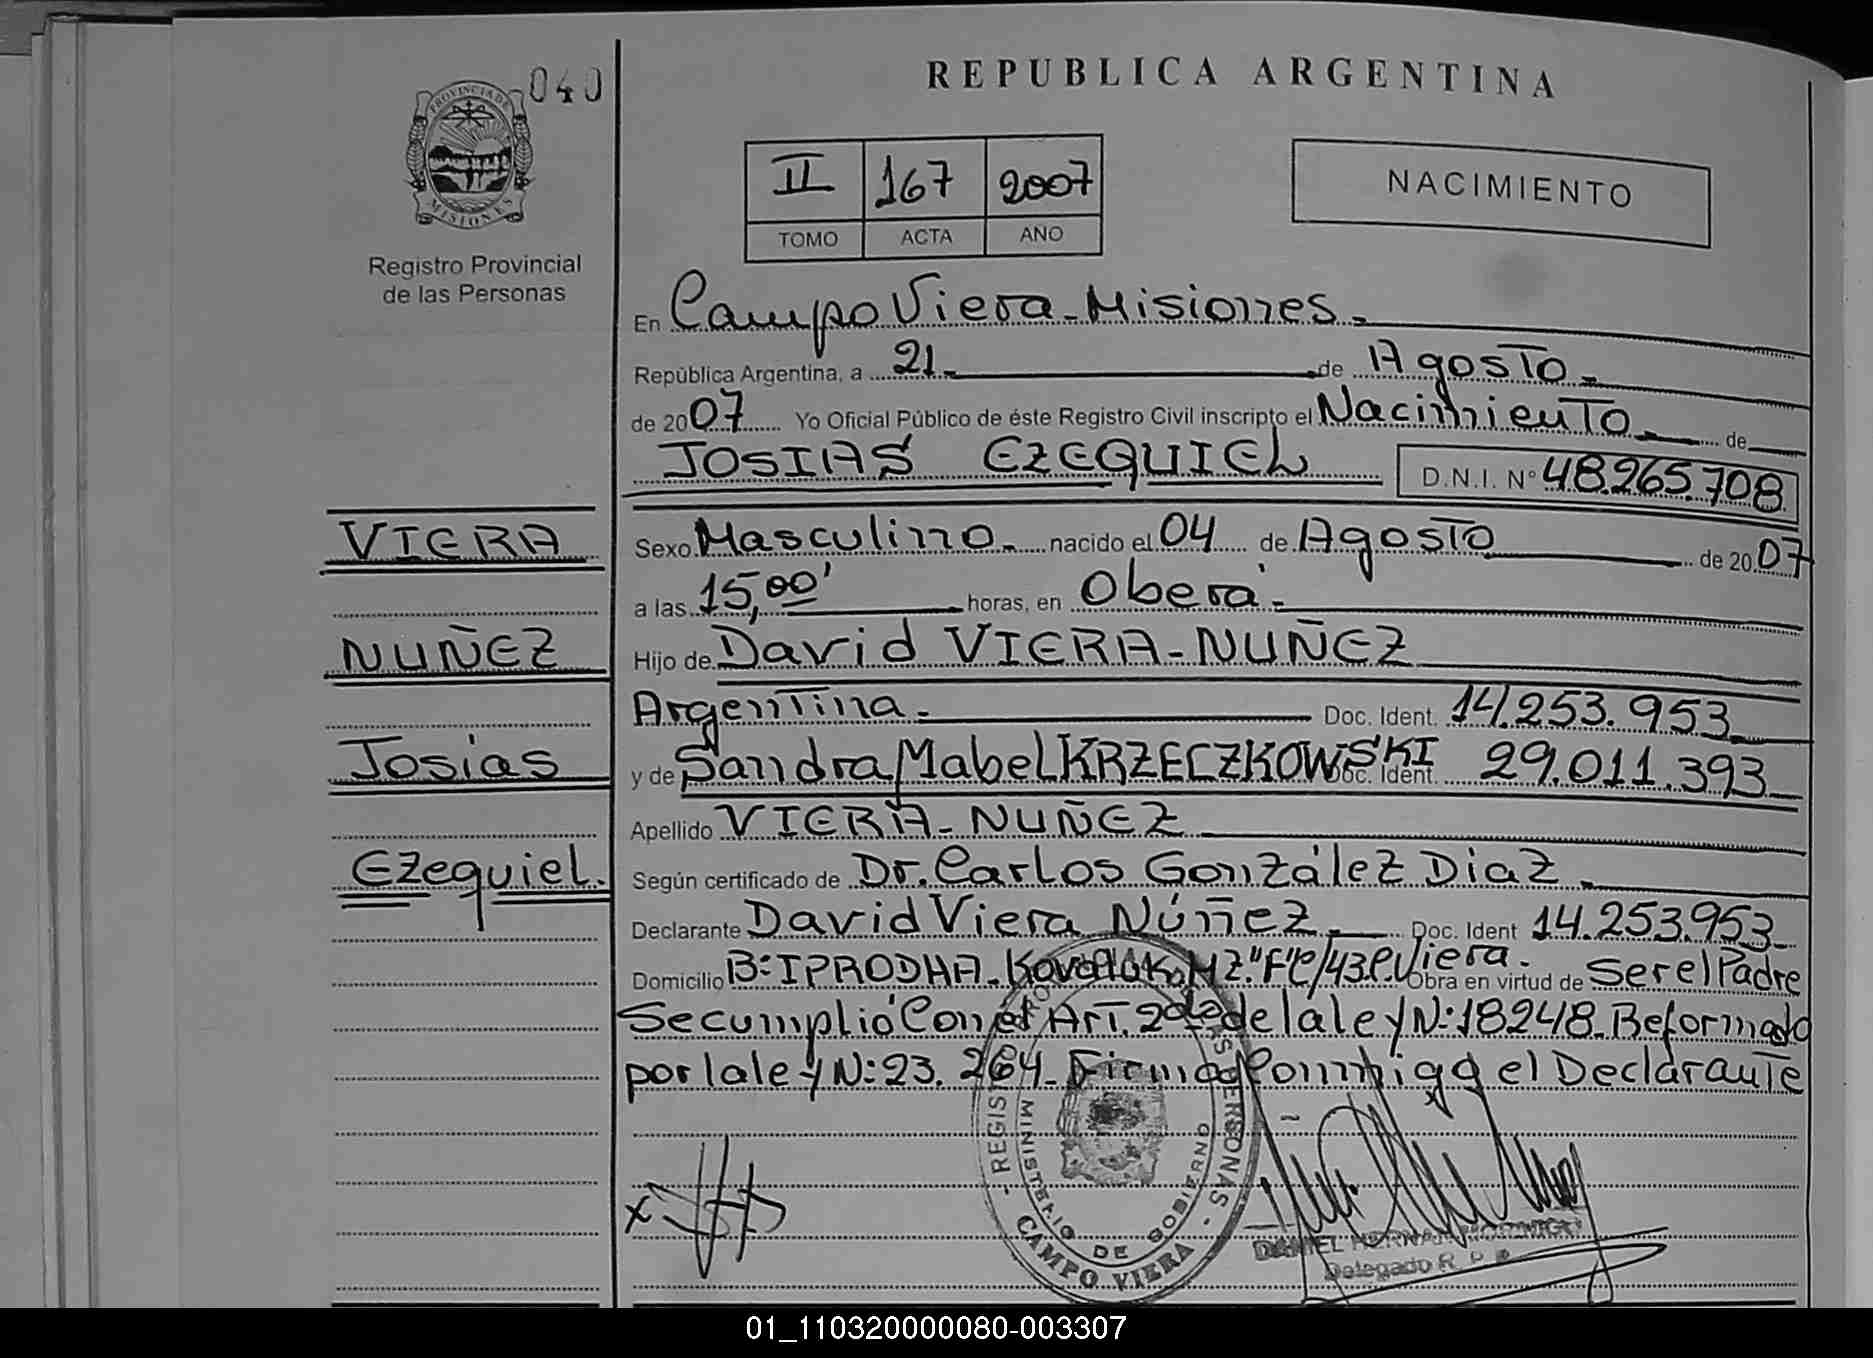 040
REPUBLICA ARGENTINA
PROVINCIA DE
MISIONES
Registro Provincial
de las Personas
II 167 2007
TOMO ACTA ANO
NACIMIENTO
En Campo Viera - Misiones.-
República Argentina, a 21.- de Agosto.-
de 2007 Yo Oficial Público de éste Registro Civil inscripto el Nacimiento de
JOSIAS EZEQUIEL D.N.I. Nº 48.265.708
VIERA
Sexo Masculino.- nacido el 04 de Agosto de 2007
a las 15,00' horas, en Oberá.-
NUÑEZ
Hijo de David VIERA - NUÑEZ
Argentina.- Doc. Ident. 14.253.953
Josías
y de Sandra Mabel KRZECZKOWSKI Doc. Ident. 29.011.393
Apellido VIERA - NUÑEZ
Ezequiel.
Según certificado de Dr. Carlos González Diaz.-
Declarante David Viera Núñez.- Doc. Ident 14.253.953
Domicilio B: IPRODHA - Mz "F" C/43 C. Viera. Obra en virtud de Ser el Padre
Se cumplió Con el Art. 2do de la ley N: 18248 - Reformado
por la ley N: 23.264 - Firma Conmigo el Declarante
x
REGISTRO PERSONAS -
MINISTERIO DE GOBIERNO
CAMPO VIERA
DANIEL HERNAN HORMIGO
Delegado R. P. P.
01_110320000080-003307